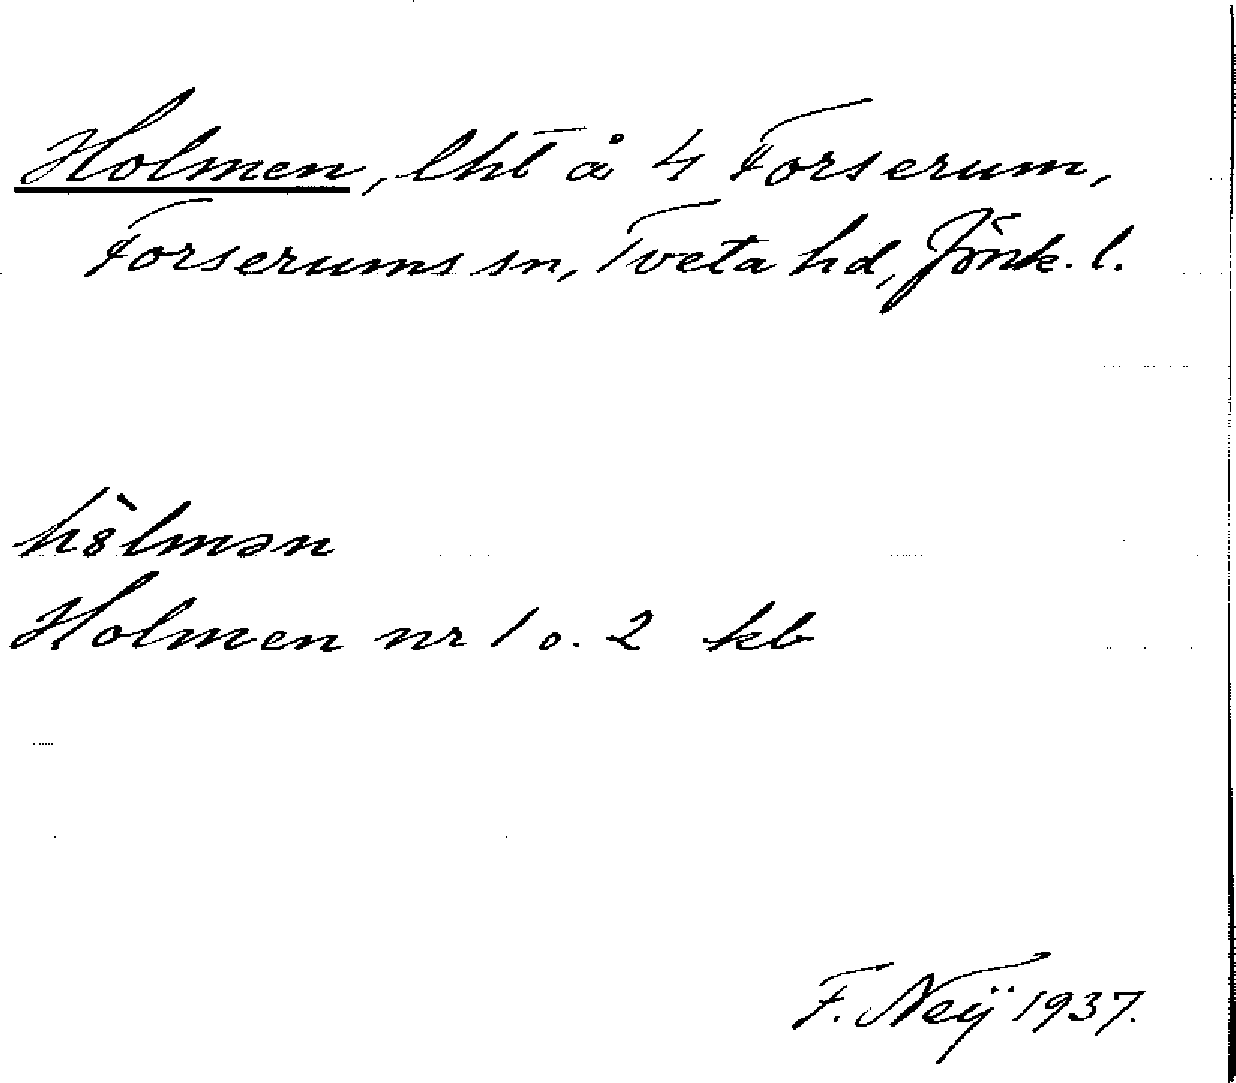 Holmen, lht å 4 Forserum,
Forserums sn, Tveta hd, Jönk. l.
hòlmən
Holmen nr 1 o. 2 kb
F. Neÿ 1937.